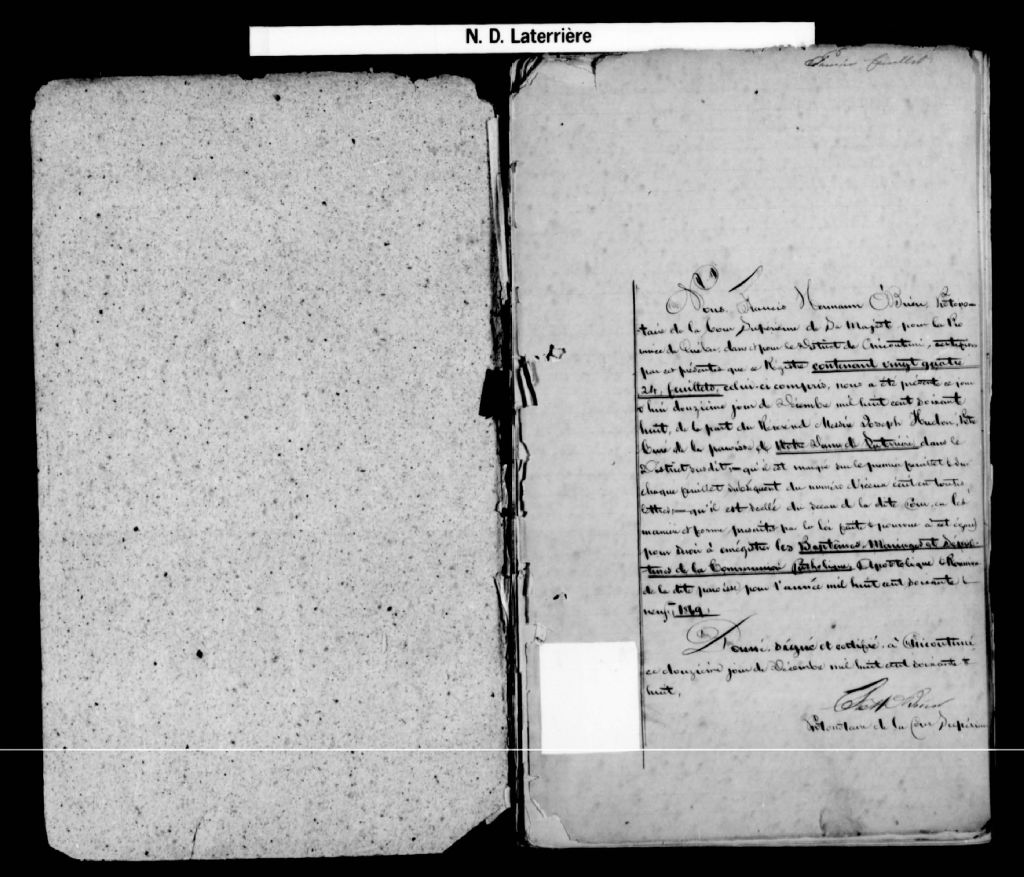 N. D. Laterrière
Premier feuillet
Nous, Francis Hermann O'Brien, Protono-
taire de la Cour Supérieure de Sa Majesté, pour la Pro
vince de Québec, dans et pour le District de Chicoutimi, certifions
par ces présentes que ce Régistre contenant vingt quatre
24, feuillets, celui-ci compris, nous a été présenté ce jour
d'hui douzième jour de Décembre mil huit cent soixante
huit, de la part du Révérend Messire Joseph Hudon, Ptre
Curé de la paroisse de Notre Dame de Laterrière, dans le
District susdit; qu'il est marqué sur le premier feuillet & sur
chaque feuillet subséquent du numéro d'iceux écrit en toutes
lettres; qu'il est scellé du sceau de la dite Cour, en la
manière et forme prescrites par la loi faite & pourvue à cet égard
pour servir à enrégistrer les Baptêmes, Mariages et Sépul-
tures de la Communion Catholique, Apostolique & Romaine
de la dite paroisse pour l'année mil huit cent soixante &
neuf, 1869.
Donné, signé et certifié, à Chicoutimi
ce douzième jour de Décembre mil huit cent soixante &
huit.
O'Brien
Protonotaire de la Cour Supérieure